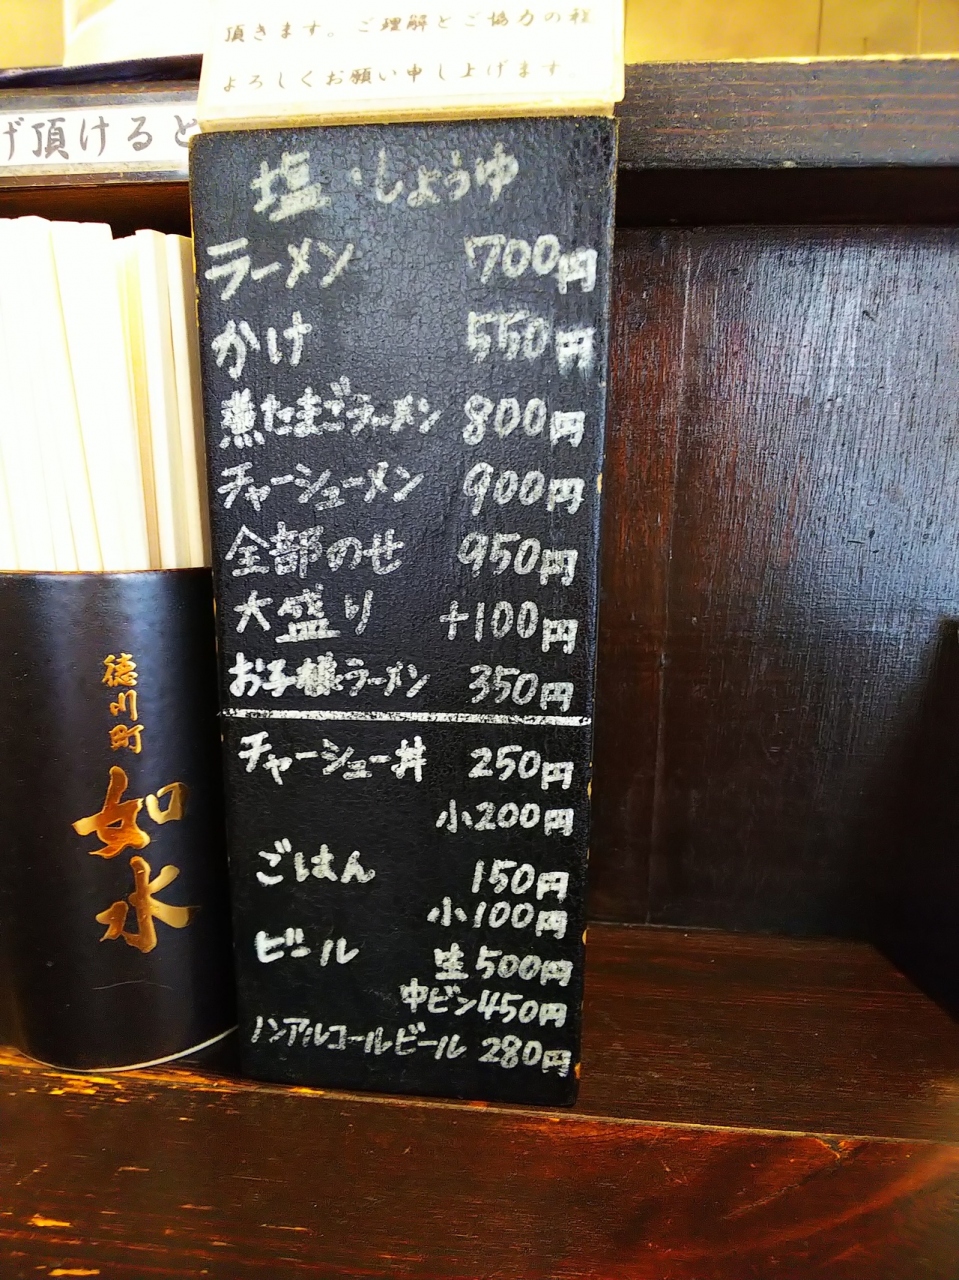 頂きます。ご理解とご協力の程
よろしくお願い申し上げます。
げ頂けると
塩・しょうゆ
ラーメン 700円
かけ 550円
煮たまごラーメン 800円
チャーシューメン 900円
全部のせ 950円
大盛り +100円
お子様ラーメン 350円
チャーシュー丼 250円
小200円
ごはん 150円
小100円
ビール 生500円
中ビン450円
ノンアルコールビール 280円
徳川町
如水